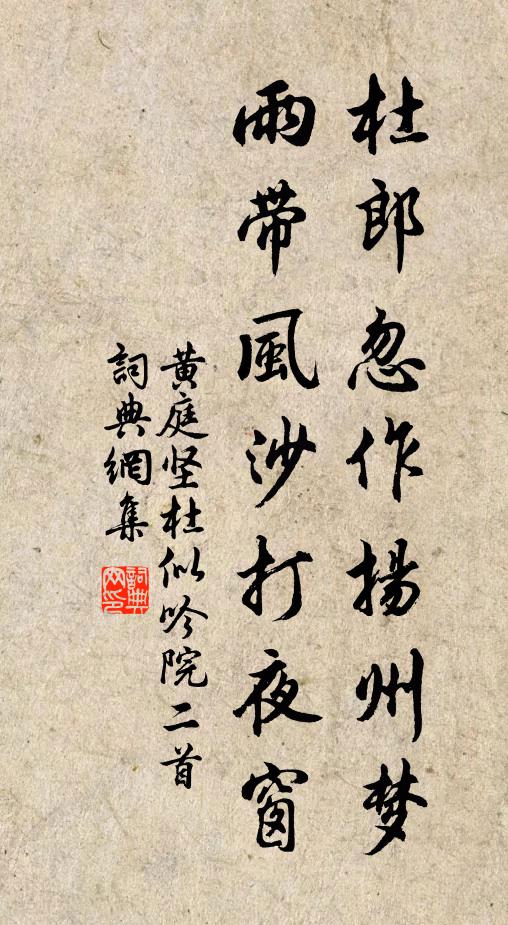 杜郎忽作揚州梦
雨带風沙打夜窗
黄庭坚杜似吟院二首
詞典網集
詞典
网印